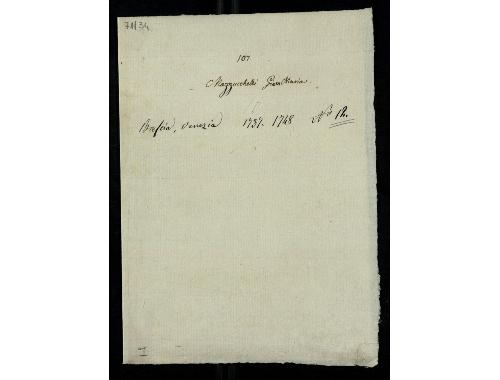 71/34
107
Mazzucchelli Giam Maria
Brescia, Venezia 1737. 1748 N° 12.
I